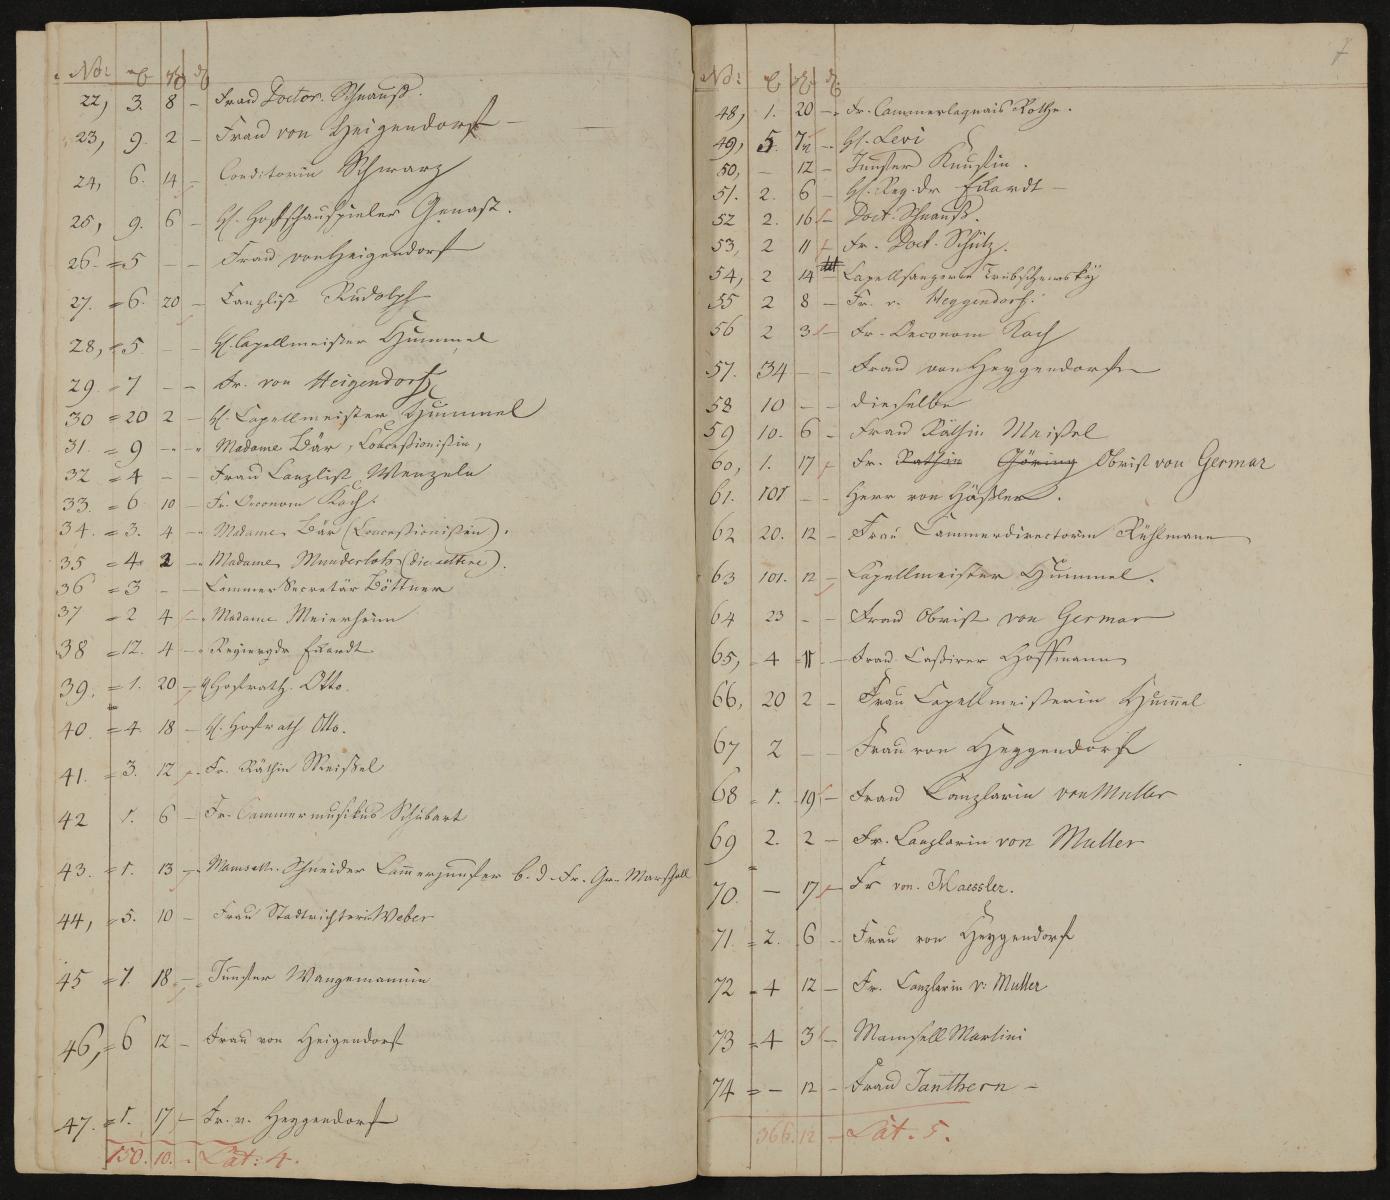 No: rℓ gℓ dℓ
22, 3. 8 – Frau Doctor Schnauß.
23, 9. 2 – Frau von Heigendorf –
24, 6. 14 – Conditorin Schwarz
25, 9. 6 – H. Hofschauspieler Genast.
26. = 5 – – Frau von Heigendorf
27. = 6. 20 – Canzlist Rudolph
28, = 5 – – H. Capellmeister Hummel
29. = 7 – – Fr. von Heigendorf
30 = 20 2 – H. Capellmeister Hummel
31. = 9 – – Madame Bär, Concessionistin,
32 = 4 – – Frau Canzlist Wenzeln
33. = 6 10 – Fr. Oeconom Koch.
34. = 3. 4 – Madame Bär (Concessionistin).
35 = 4 2 – Madame Munderloh (die ältere).
36 = 3 – – Cammer Secretär Böttner
37 = 2 4 – Madame Meierheim
38 = 12. 4 – Regiergdr Eckardt
39. = 1. 20 – H Hofrath Otto.
40. = 4 18 – H. Hofrath Otto.
41. = 3. 12 – Fr. Räthin Meißel
42 1. 6 – Fr. Cammermusikus Schubart
43. = 1. 13 – Mamsell Schneider Cammerjunfer b. d. Fr. Gr. Marschall
44, = 5. 10 – Frau Stadtrichterin Weber
45 = 7. 18 – Junfer Wangemannin
46, = 6 12 – Frau von Heigendorf
47. = 1. 17 – Fr. v. Heygendorf
150. 10. – Lat: 4.
7
No: rℓ gℓ dℓ
48, 1. 20 – Fr. Cammerlaquais Rothe.
49, 5. 7 – H. Levi
50, – 12 – Junfer Knustin.
51. 2. 6 – H. Reg. dr Eckardt –
52 2. 16 – Doct. Schnauß.
53, 2 11 – Fr. Doct. Schütz.
54, 2 14 – Capellsangerin
55 2 8 – Fr. v. Heggendorf.
56 2 3 – Fr. Oeconom Koch
57. 34 – – Frau von Heygendorf
58 10 – – dieselbe
59 10. 6 – Frau Räthin Meißel
60, 1. 17 – Fr. Räthin Göring Obrist von Germar
61. 101 – – Herr von Häßler.
62 20. 12 – Frau Cammerdirectorin Rühlmann
63 101. 12 – Capellmeister Hummel.
64 23 – – Frau Obrist von Germar
65, 4 11 – Frau Cassirer Hoffmann
66, 20 2 – Frau Capellmeisterin Hum̄el
67 2 – – Frau von Heggendorf
68 = 1. 19 – Frau Canzlarin von Muller
69 2. 2 – Fr. Canzlarin von Muller
70. – 17 – Fr von Maessler.
71. = 2. 6 – Frau von Heygendorf
72 = 4 12 – Fr. Canzlarin v: Muller
73 = 4 3 – Mamsell Martini
74 = – 12 – Frau Janthern –
366. 12 – Lat. 5.